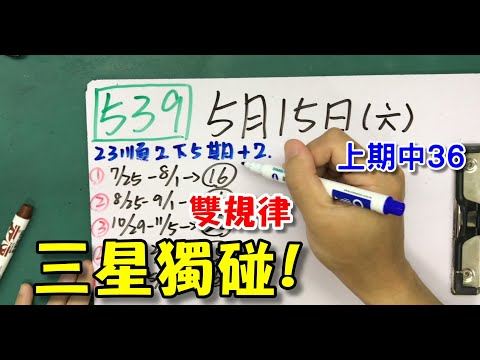 539 5月15日(六)
23順2下5期+2.
上期中36
① 7/25-8/1→⑯
② 8/25-9/1-
雙規律
③ 10/29-11/5→
三星獨碰!